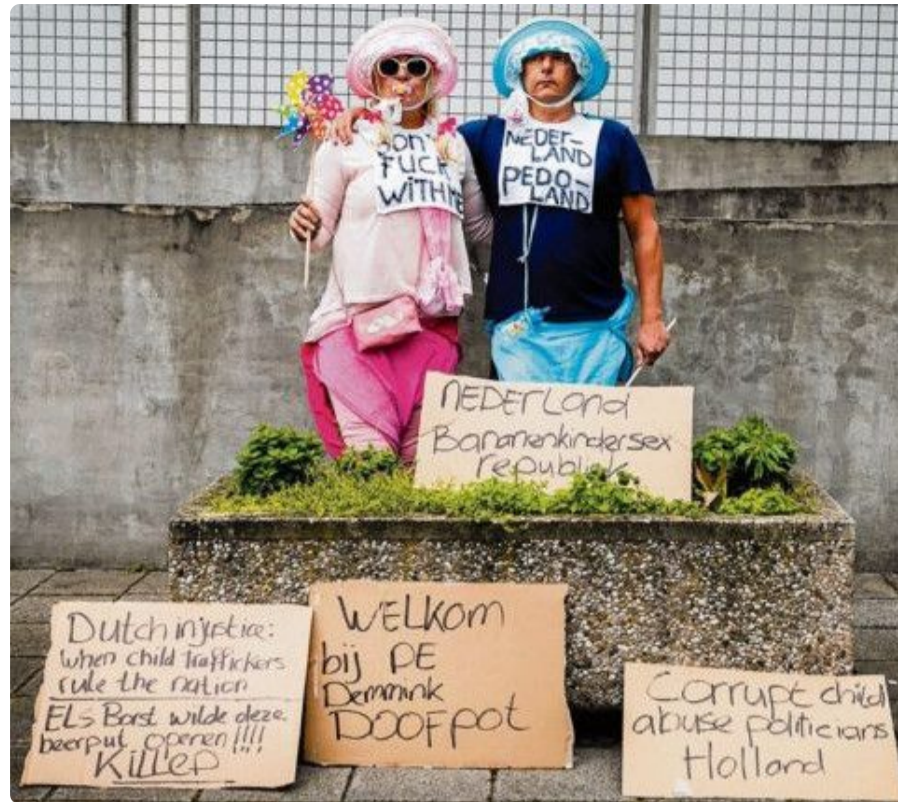 DON'T
FUCK
WiTH ME
NEDER-
LAND
PEDO-
LAND
NEDERLand
Bananenkindersex
republiek
Dutch injustice:
when child traffickers
rule the nation
ELs Borst wilde deze
beerput openen!!!!
KiLLED
WELKOM
bij DE
Demmink
DOOFPOT
Corrupt child
abuse politicians
Holland